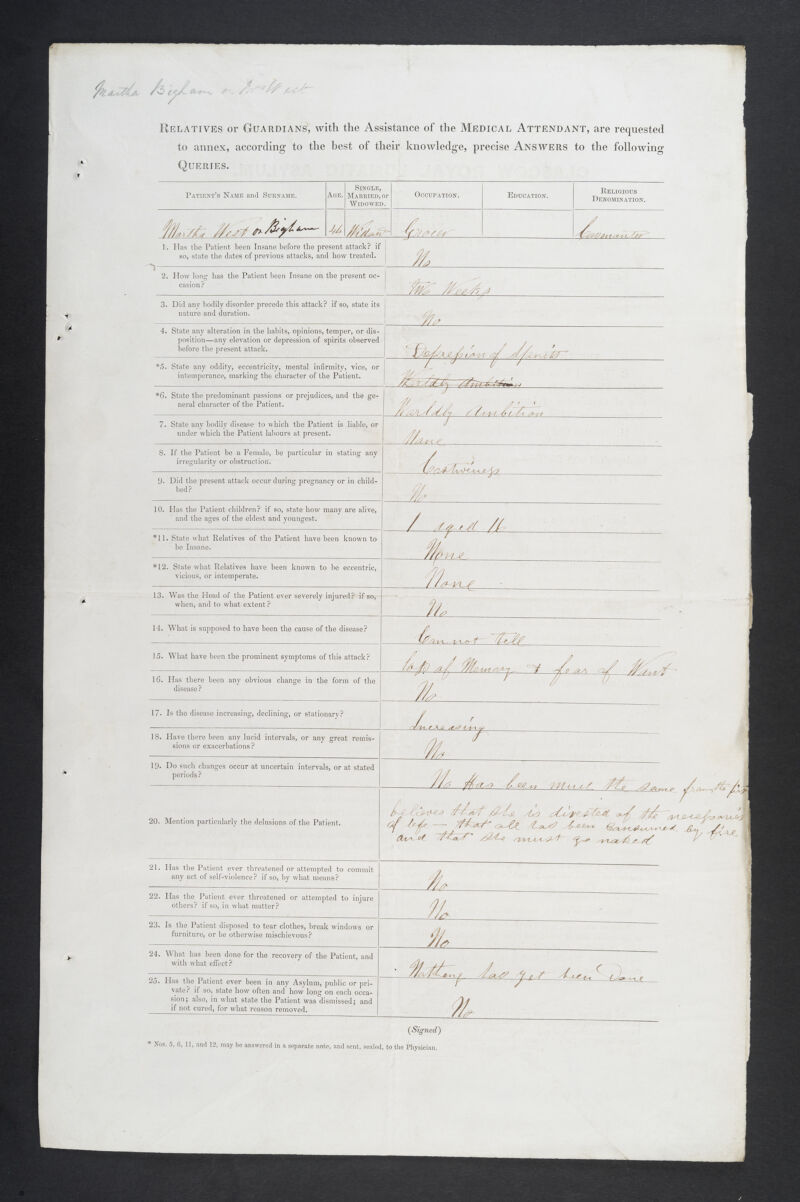 Martha Bigham or Mrs West
RELATIVES or GUARDIANS, with the Assistance of the MEDICAL ATTENDANT, are requested
to annex, according to the best of their knowledge, precise ANSWERS to the following
QUERIES.
PATIENT'S NAME and SURNAME. AGE. SINGLE, MARRIED, or WIDOWED. OCCUPATION. EDUCATION. RELIGIOUS DENOMINATION.
Martha West or Bigham 46 Widow Grocer Covenanter
1. Has the Patient been Insane before the present attack? if
so, state the dates of previous attacks, and how treated.
No
2. How long has the Patient been Insane on the present oc-
casion?
Two Weeks
3. Did any bodily disorder precede this attack? if so, state its
nature and duration.
No
4. State any alteration in the habits, opinions, temper, or dis-
position—any elevation or depression of spirits observed
before the present attack.
Depression of Spirits
*5. State any oddity, eccentricity, mental infirmity, vice, or
intemperance, marking the character of the Patient.
Worldly Ambition
*6. State the predominant passions or prejudices, and the ge-
neral character of the Patient.
Worldly Ambition
7. State any bodily disease to which the Patient is liable, or
under which the Patient labours at present.
None
8. If the Patient be a Female, be particular in stating any
irregularity or obstruction.
Costiveness
9. Did the present attack occur during pregnancy or in child-
bed?
No
10. Has the Patient children? if so, state how many are alive,
and the ages of the eldest and youngest.
1 aged 16
*11. State what Relatives of the Patient have been known to
be Insane.
None
*12. State what Relatives have been known to be eccentric,
vicious, or intemperate.
None
13. Was the Head of the Patient ever severely injured? if so,
when, and to what extent?
No
14. What is supposed to have been the cause of the disease?
Cannot tell
15. What have been the prominent symptoms of this attack?
loss of Memory & fear of Want
16. Has there been any obvious change in the form of the
disease?
No
17. Is the disease increasing, declining, or stationary?
Increasing
18. Have there been any lucid intervals, or any great remis-
sions or exacerbations?
No
19. Do such changes occur at uncertain intervals, or at stated
periods?
No Has been much the same from the first
20. Mention particularly the delusions of the Patient.
believes that she is divested of the necessaries
of life – that all has been consumed by fire
and that she must go naked
21. Has the Patient ever threatened or attempted to commit
any act of self-violence? if so, by what means?
No
22. Has the Patient ever threatened or attempted to injure
others? if so, in what matter?
No
23. Is the Patient disposed to tear clothes, break windows or
furniture, or be otherwise mischievous?
No
24. What has been done for the recovery of the Patient, and
with what effect?
Nothing has yet been Done
25. Has the Patient ever been in any Asylum, public or pri-
vate? if so, state how often and how long on each occa-
sion; also, in what state the Patient was dismissed; and
if not cured, for what reason removed.
No
(Signed)
* Nos. 5, 6, 11, and 12, may be answered in a separate note, and sent, sealed, to the Physician.